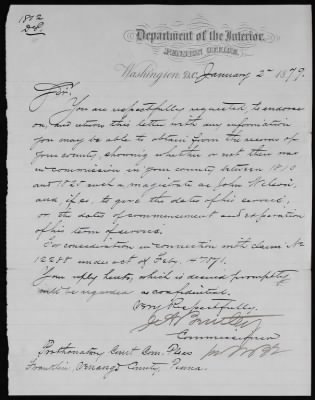 1812
Department of the Interior,
PENSION OFFICE,
Washington, D.C. January 2 1879.
Sir:
You are respectfully requested to endorse
on, and return this letter with any information
you may be able to obtain from the records of
your county, showing whether or not there was
in commission in your county between 1810
and 1825 such a magistrate as John Wilson,
and, if so, to give the dates of his service,
or the dates of commencement and expiration
of his term of service.
For consideration in connection with claim No
12288 under act of Feb. 1871.
Your reply hereto, which is desired promptly
will be regarded as confidential.
Very Respectfully,
J.A. Bentley
Commissioner
Prothonotary Court Com. Pleas
Franklin, Venango County, Penna.